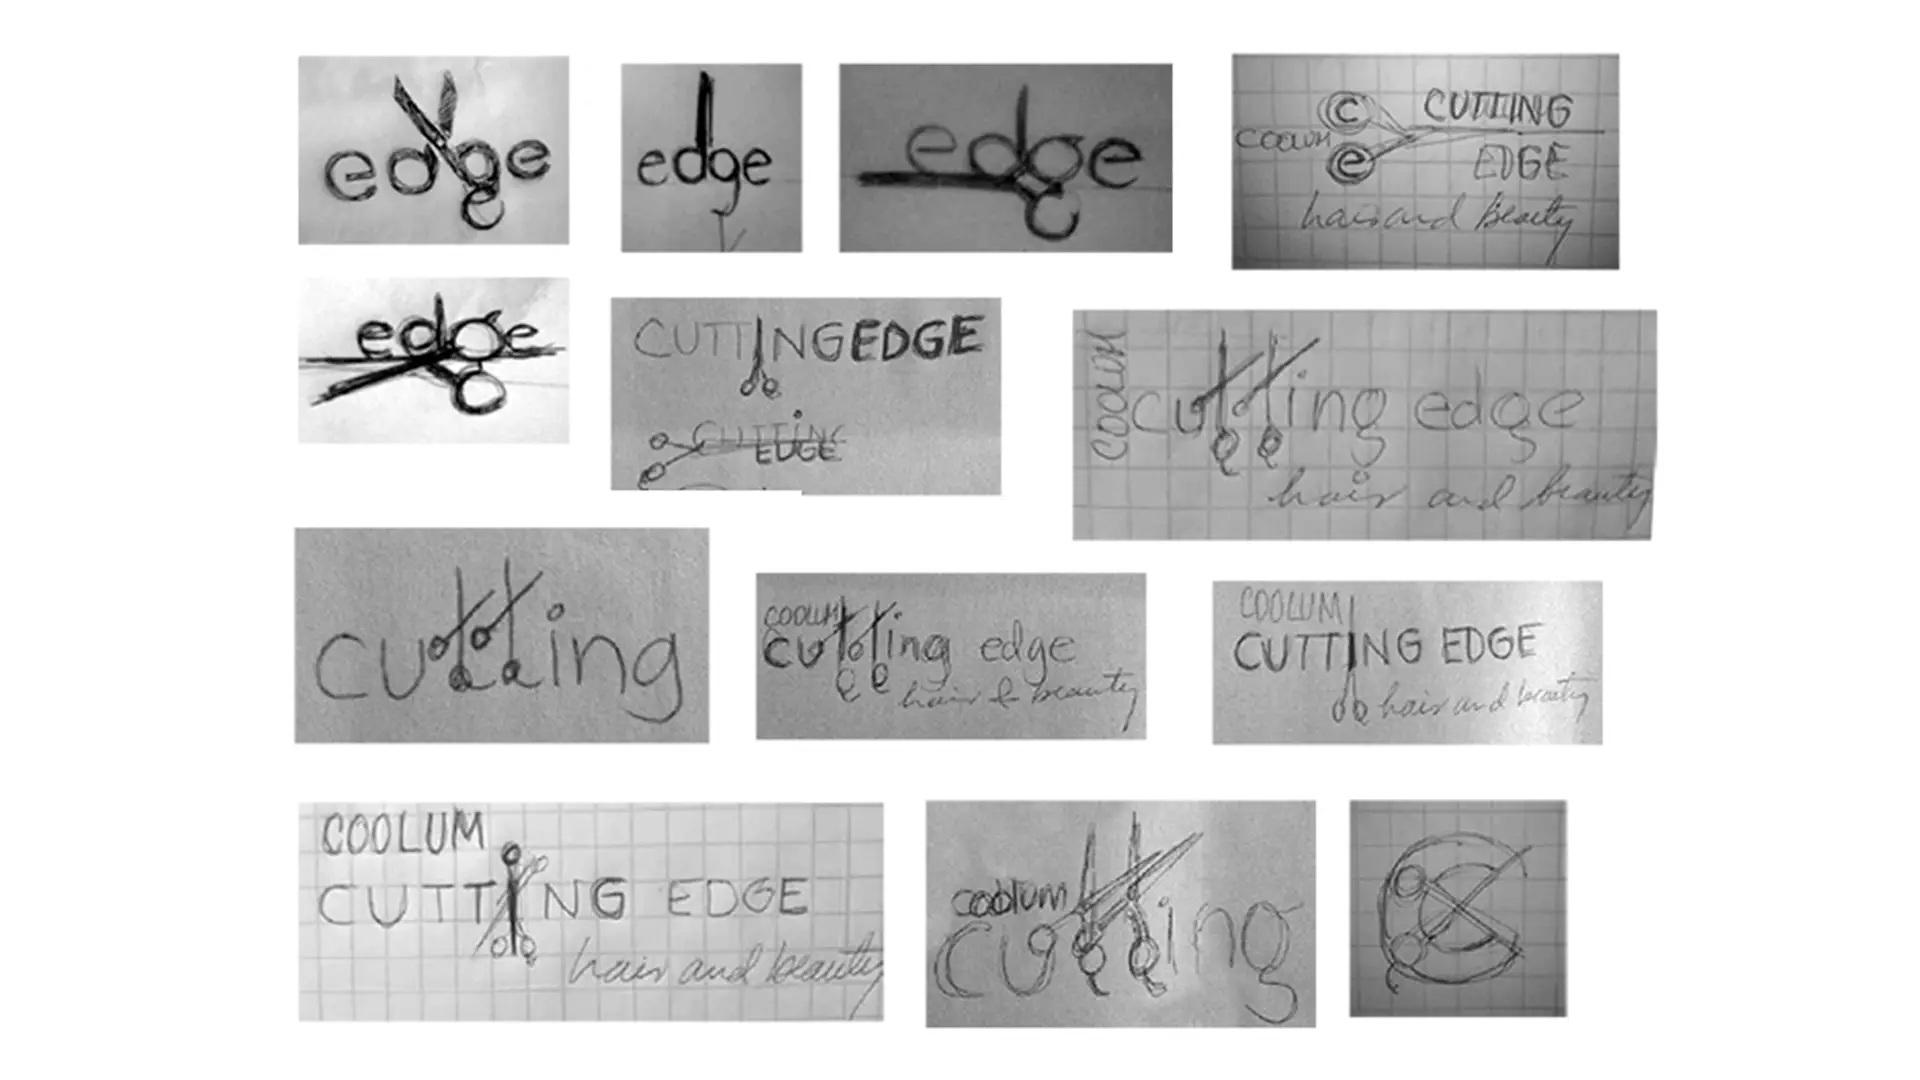 edge
edge
edge
C
CUTTING
COOLUM
e
EDGE
hair and Beauty
edge
CUTTINGEDGE
CUTTING
EDGE
COOLUM
cutting edge
hair and beauty
cutting
COOLUM
cutting edge
hair & beauty
COOLUM
CUTTING EDGE
hair and beauty
COOLUM
CUTTING EDGE
hair and beauty
coolum
cutting